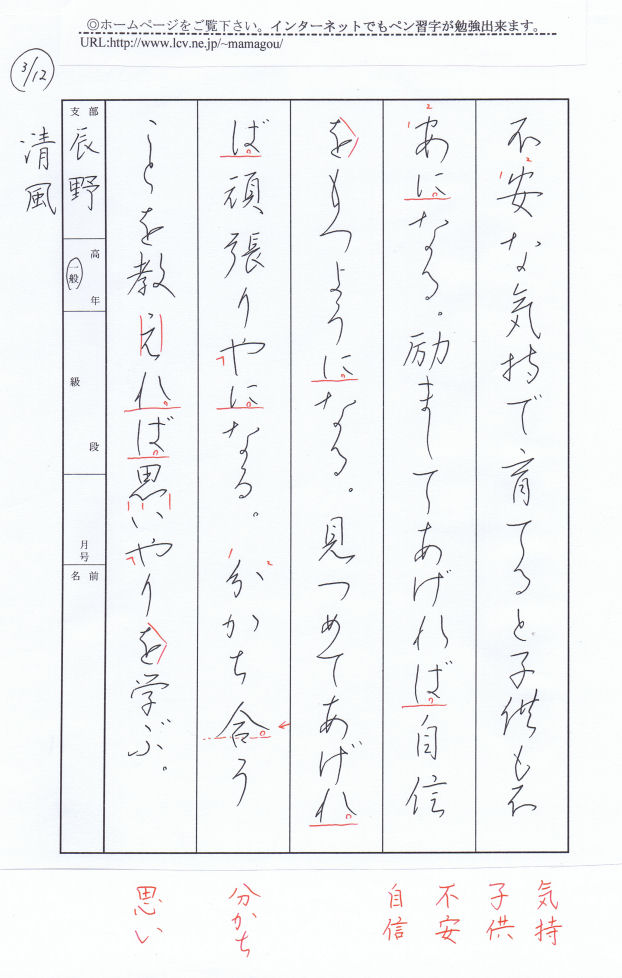 ◎ホームページをご覧下さい。インターネットでもペン習字が勉強出来ます。
URL:http://www.lcv.ne.jp/~mamagou/
3/12
不安な気持で育てると子供も不
安になる。励ましてあげれば自信
をもつようになる。見つめてあげれ
ば頑張りやになる。分かち合う
ことを教えれば思いやりを学ぶ。
支部
辰野
高
一般
年
級
段
月号
名前
清風
気持
子供
不安
自信
分かち
思い